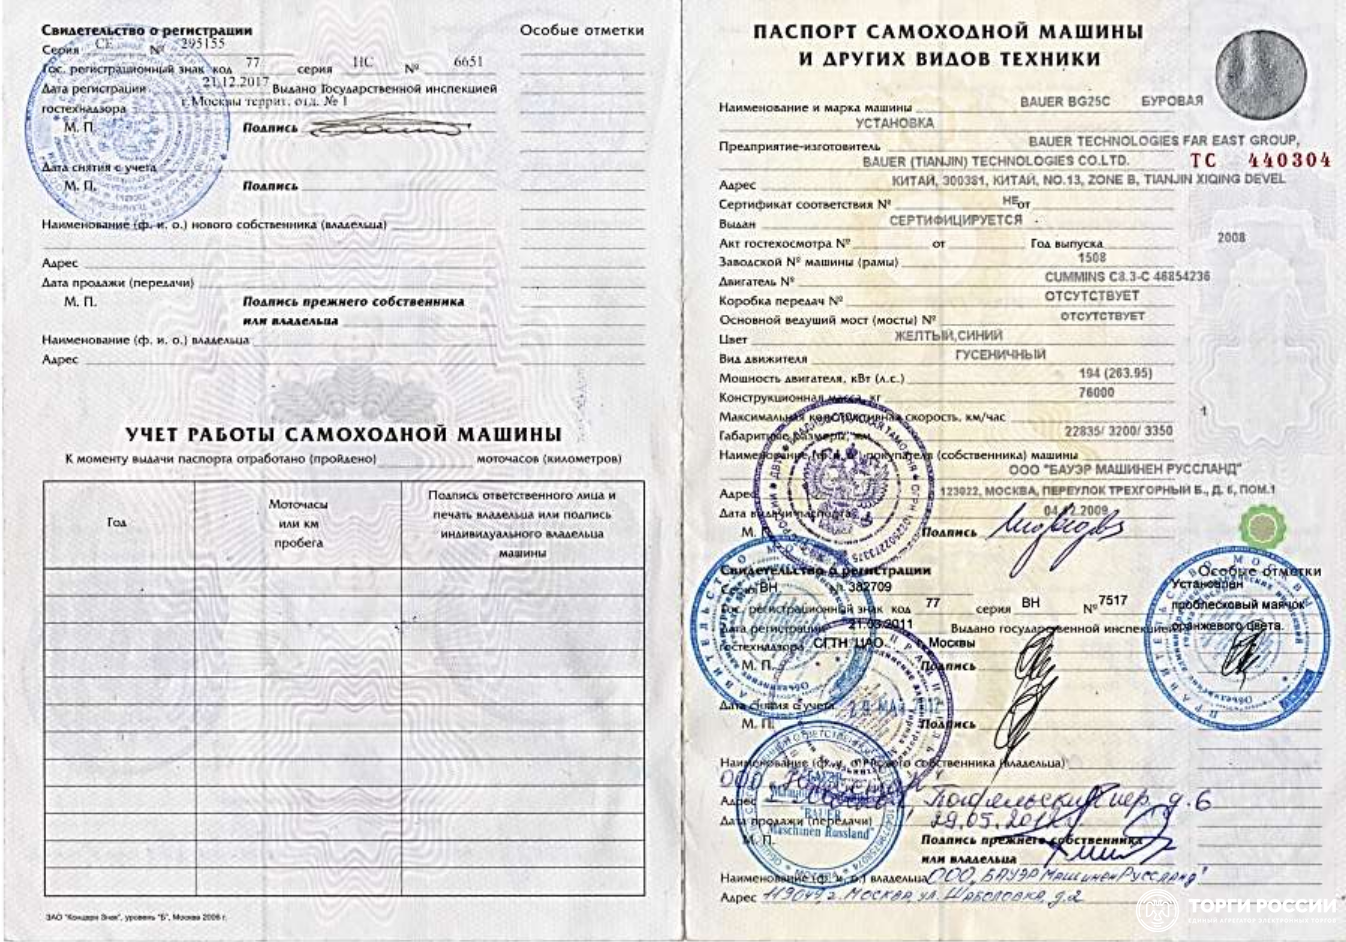 Свидетельство о регистрации
Особые отметки
Серия СЕ № 295155
Гос. регистрационный знак код 77 серия НС № 6651
Дата регистрации 21.12.2017 Выдано Государственной инспекцией
гостехнадзора г. Москвы террит. отд. № 1
М. П. Подпись
Дата снятия с учета
М. П. Подпись
Наименование (ф. и. о.) нового собственника (владельца)
Адрес
Дата продажи (передачи)
М. П. Подпись прежнего собственника
или владельца
Наименование (ф. и. о.) владельца
Адрес
УЧЕТ РАБОТЫ САМОХОДНОЙ МАШИНЫ
К моменту выдачи паспорта отработано (пройдено) моточасов (километров)
Год
Моточасы
или км
пробега
Подпись ответственного лица и
печать владельца или подпись
индивидуального владельца
машины
ЗАО "Концерн Знак", уровень "Б", Москва 2006 г.
ПАСПОРТ САМОХОДНОЙ МАШИНЫ
И ДРУГИХ ВИДОВ ТЕХНИКИ
Наименование и марка машины BAUER BG25C БУРОВАЯ
УСТАНОВКА
Предприятие-изготовитель BAUER TECHNOLOGIES FAR EAST GROUP,
BAUER (TIANJIN) TECHNOLOGIES CO.LTD.
ТС 440304
Адрес КИТАЙ, 300381, КИТАЙ, NO.13, ZONE B, TIANJIN XIQING DEVEL
Сертификат соответствия № НЕ от
Выдан СЕРТИФИЦИРУЕТСЯ
Акт гостехосмотра № от Год выпуска 2008
Заводской № машины (рамы) 1508
Двигатель № CUMMINS C8.3-C 46854236
Коробка передач № ОТСУТСТВУЕТ
Основной ведущий мост (мосты) № ОТСУТСТВУЕТ
Цвет ЖЕЛТЫЙ,СИНИЙ
Вид движителя ГУСЕНИЧНЫЙ
Мощность двигателя, кВт (л.с.) 194 (263.95)
Конструкционная масса, кг 76000
Максимальная конструктивная скорость, км/час 1
Габаритные размеры, мм 22835/ 3200/ 3350
Наименование (ф. и. о.) покупателя (собственника) машины
ООО "БАУЭР МАШИНЕН РУССЛАНД"
Адрес 123022, МОСКВА, ПЕРЕУЛОК ТРЕХГОРНЫЙ Б., Д. 6, ПОМ.1
Дата выдачи паспорта 04.12.2009
М. П. Подпись
Свидетельство о регистрации
Особые отметки
Серия ВН № 382709
Установлен
проблесковый маячок
оранжевого цвета.
Гос. регистрационный знак код 77 серия ВН № 7517
Дата регистрации 21.03.2011 Выдано государственной инспекцией
гостехнадзора СГТН ЦАО Москвы
М. П. Подпись
Дата снятия с учета 29 МАЯ 2012
М. П. Подпись
Наименование (ф. и. о.) нового собственника (владельца)
ООО
Адрес пер. д. 6
Дата продажи (передачи) 29.05.2012
М. П. Подпись прежнего собственника
или владельца
"BAUER
Maschinen Russland"
Наименование (ф. и. о.) владельца ООО "БАУЭР Машинен Руссланд"
Адрес 119049, г. МОСКВА, ул. ШАБОЛОВКА, д.2
ТОРГИ РОССИИ